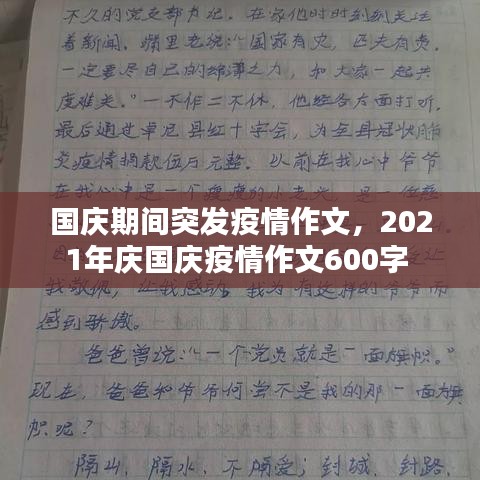 不久的党支部书记。在家他时时刻刻关注
着新闻。嘴里老说:“国家有灾,匹夫有责。
一定要尽自己的绵薄之力,和大家一起共
度难关。”一不作二不休,他经各方面打听,
最后通过卓尼县红十字会,为全县冠状肺
炎疫情捐款伍仟元整。从前在我心中爷爷
在我心中是一个瘦瘦的小老头,是一位
国庆期间突发疫情作文,202
1年庆国庆疫情作文600字
我敬佩,让我感动,我为有这样的爷爷而
感到骄傲。
爸爸曾说:“一个党员就是一面旗帜。”
现在,爸爸和爷爷何尝不是我的那一面旗
帜呢?
隔山,隔水,不隔爱;封城,封路,